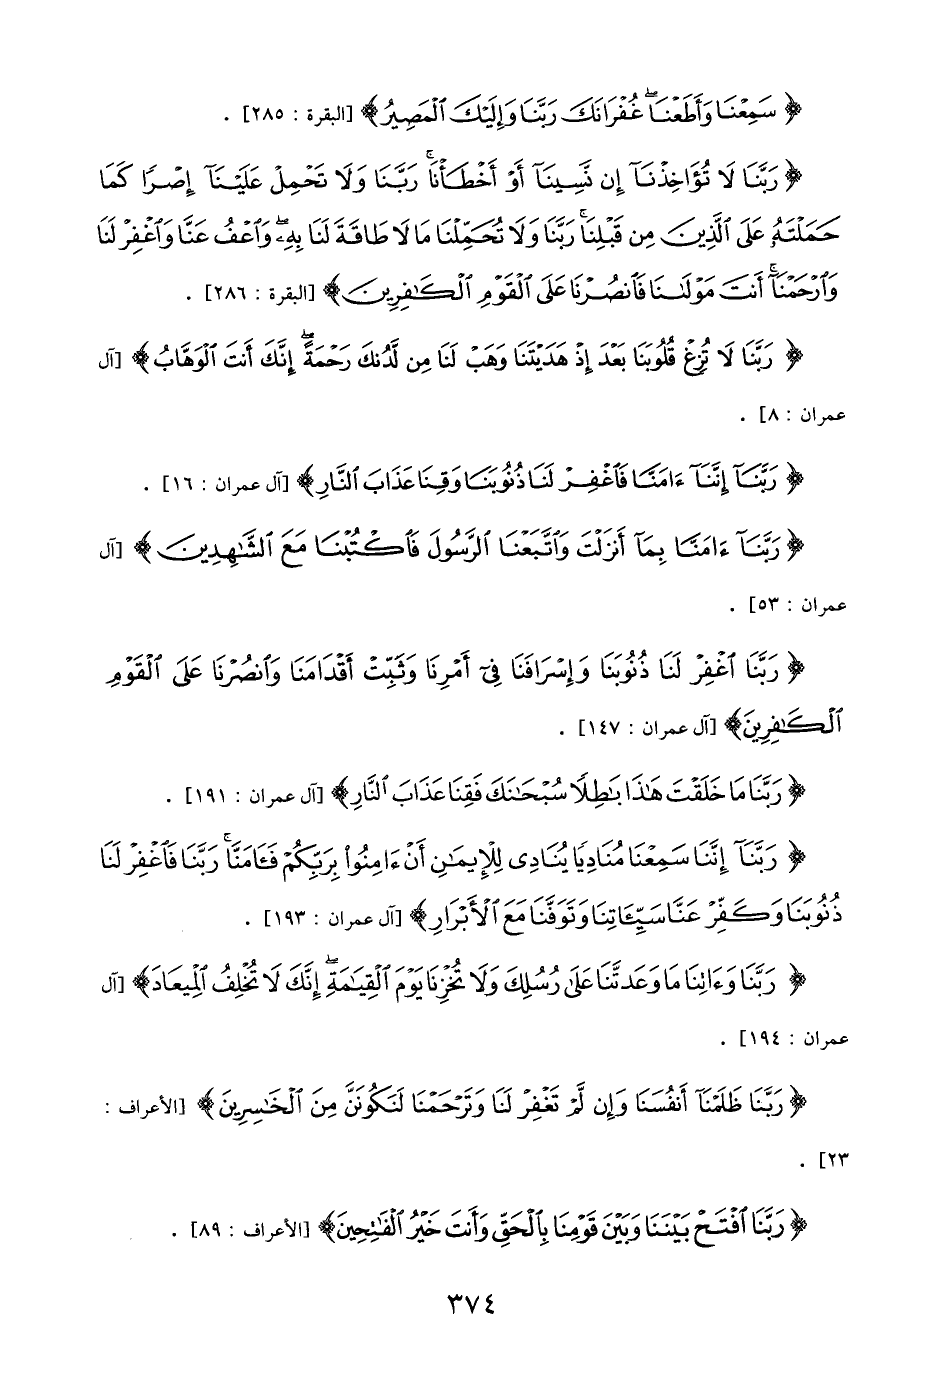 ﴿ سَمِعْنَا وَأَطَعْنَا ۖ غُفْرَانَكَ رَبَّنَا وَإِلَيْكَ ٱلْمَصِيرُ ﴾ [البقرة : ٢٨٥] .
﴿ رَبَّنَا لَا تُؤَاخِذْنَآ إِن نَّسِينَآ أَوْ أَخْطَأْنَا ۚ رَبَّنَا وَلَا تَحْمِلْ عَلَيْنَآ إِصْرًا كَمَا
حَمَلْتَهُۥ عَلَى ٱلَّذِينَ مِن قَبْلِنَا ۚ رَبَّنَا وَلَا تُحَمِّلْنَا مَا لَا طَاقَةَ لَنَا بِهِۦ ۖ وَٱعْفُ عَنَّا وَٱغْفِرْ لَنَا
وَٱرْحَمْنَآ ۚ أَنتَ مَوْلَىٰنَا فَٱنصُرْنَا عَلَى ٱلْقَوْمِ ٱلْكَٰفِرِينَ ﴾ [البقرة : ٢٨٦] .
﴿ رَبَّنَا لَا تُزِغْ قُلُوبَنَا بَعْدَ إِذْ هَدَيْتَنَا وَهَبْ لَنَا مِن لَّدُنكَ رَحْمَةً ۚ إِنَّكَ أَنتَ ٱلْوَهَّابُ ﴾ [آل
عمران : ٨] .
﴿ رَبَّنَآ إِنَّنَآ ءَامَنَّا فَٱغْفِرْ لَنَا ذُنُوبَنَا وَقِنَا عَذَابَ ٱلنَّارِ ﴾ [آل عمران : ١٦] .
﴿ رَبَّنَآ ءَامَنَّا بِمَآ أَنزَلْتَ وَٱتَّبَعْنَا ٱلرَّسُولَ فَٱكْتُبْنَا مَعَ ٱلشَّٰهِدِينَ ﴾ [آل
عمران : ٥٣] .
﴿ رَبَّنَا ٱغْفِرْ لَنَا ذُنُوبَنَا وَإِسْرَافَنَا فِىٓ أَمْرِنَا وَثَبِّتْ أَقْدَامَنَا وَٱنصُرْنَا عَلَى ٱلْقَوْمِ
ٱلْكَٰفِرِينَ ﴾ [آل عمران : ١٤٧] .
﴿ رَبَّنَا مَا خَلَقْتَ هَٰذَا بَٰطِلًا سُبْحَٰنَكَ فَقِنَا عَذَابَ ٱلنَّارِ ﴾ [آل عمران : ١٩١] .
﴿ رَبَّنَآ إِنَّنَا سَمِعْنَا مُنَادِيًا يُنَادِى لِلْإِيمَٰنِ أَنْ ءَامِنُوا۟ بِرَبِّكُمْ فَـَٔامَنَّا ۚ رَبَّنَا فَٱغْفِرْ لَنَا
ذُنُوبَنَا وَكَفِّرْ عَنَّا سَيِّـَٔاتِنَا وَتَوَفَّنَا مَعَ ٱلْأَبْرَارِ ﴾ [آل عمران : ١٩٣] .
﴿ رَبَّنَا وَءَاتِنَا مَا وَعَدتَّنَا عَلَىٰ رُسُلِكَ وَلَا تُخْزِنَا يَوْمَ ٱلْقِيَٰمَةِ ۖ إِنَّكَ لَا تُخْلِفُ ٱلْمِيعَادَ ﴾ [آل
عمران : ١٩٤] .
﴿ رَبَّنَا ظَلَمْنَآ أَنفُسَنَا وَإِن لَّمْ تَغْفِرْ لَنَا وَتَرْحَمْنَا لَنَكُونَنَّ مِنَ ٱلْخَٰسِرِينَ ﴾ [الأعراف :
٢٣] .
﴿ رَبَّنَا ٱفْتَحْ بَيْنَنَا وَبَيْنَ قَوْمِنَا بِٱلْحَقِّ وَأَنتَ خَيْرُ ٱلْفَٰتِحِينَ ﴾ [الأعراف : ٨٩] .
٣٧٤